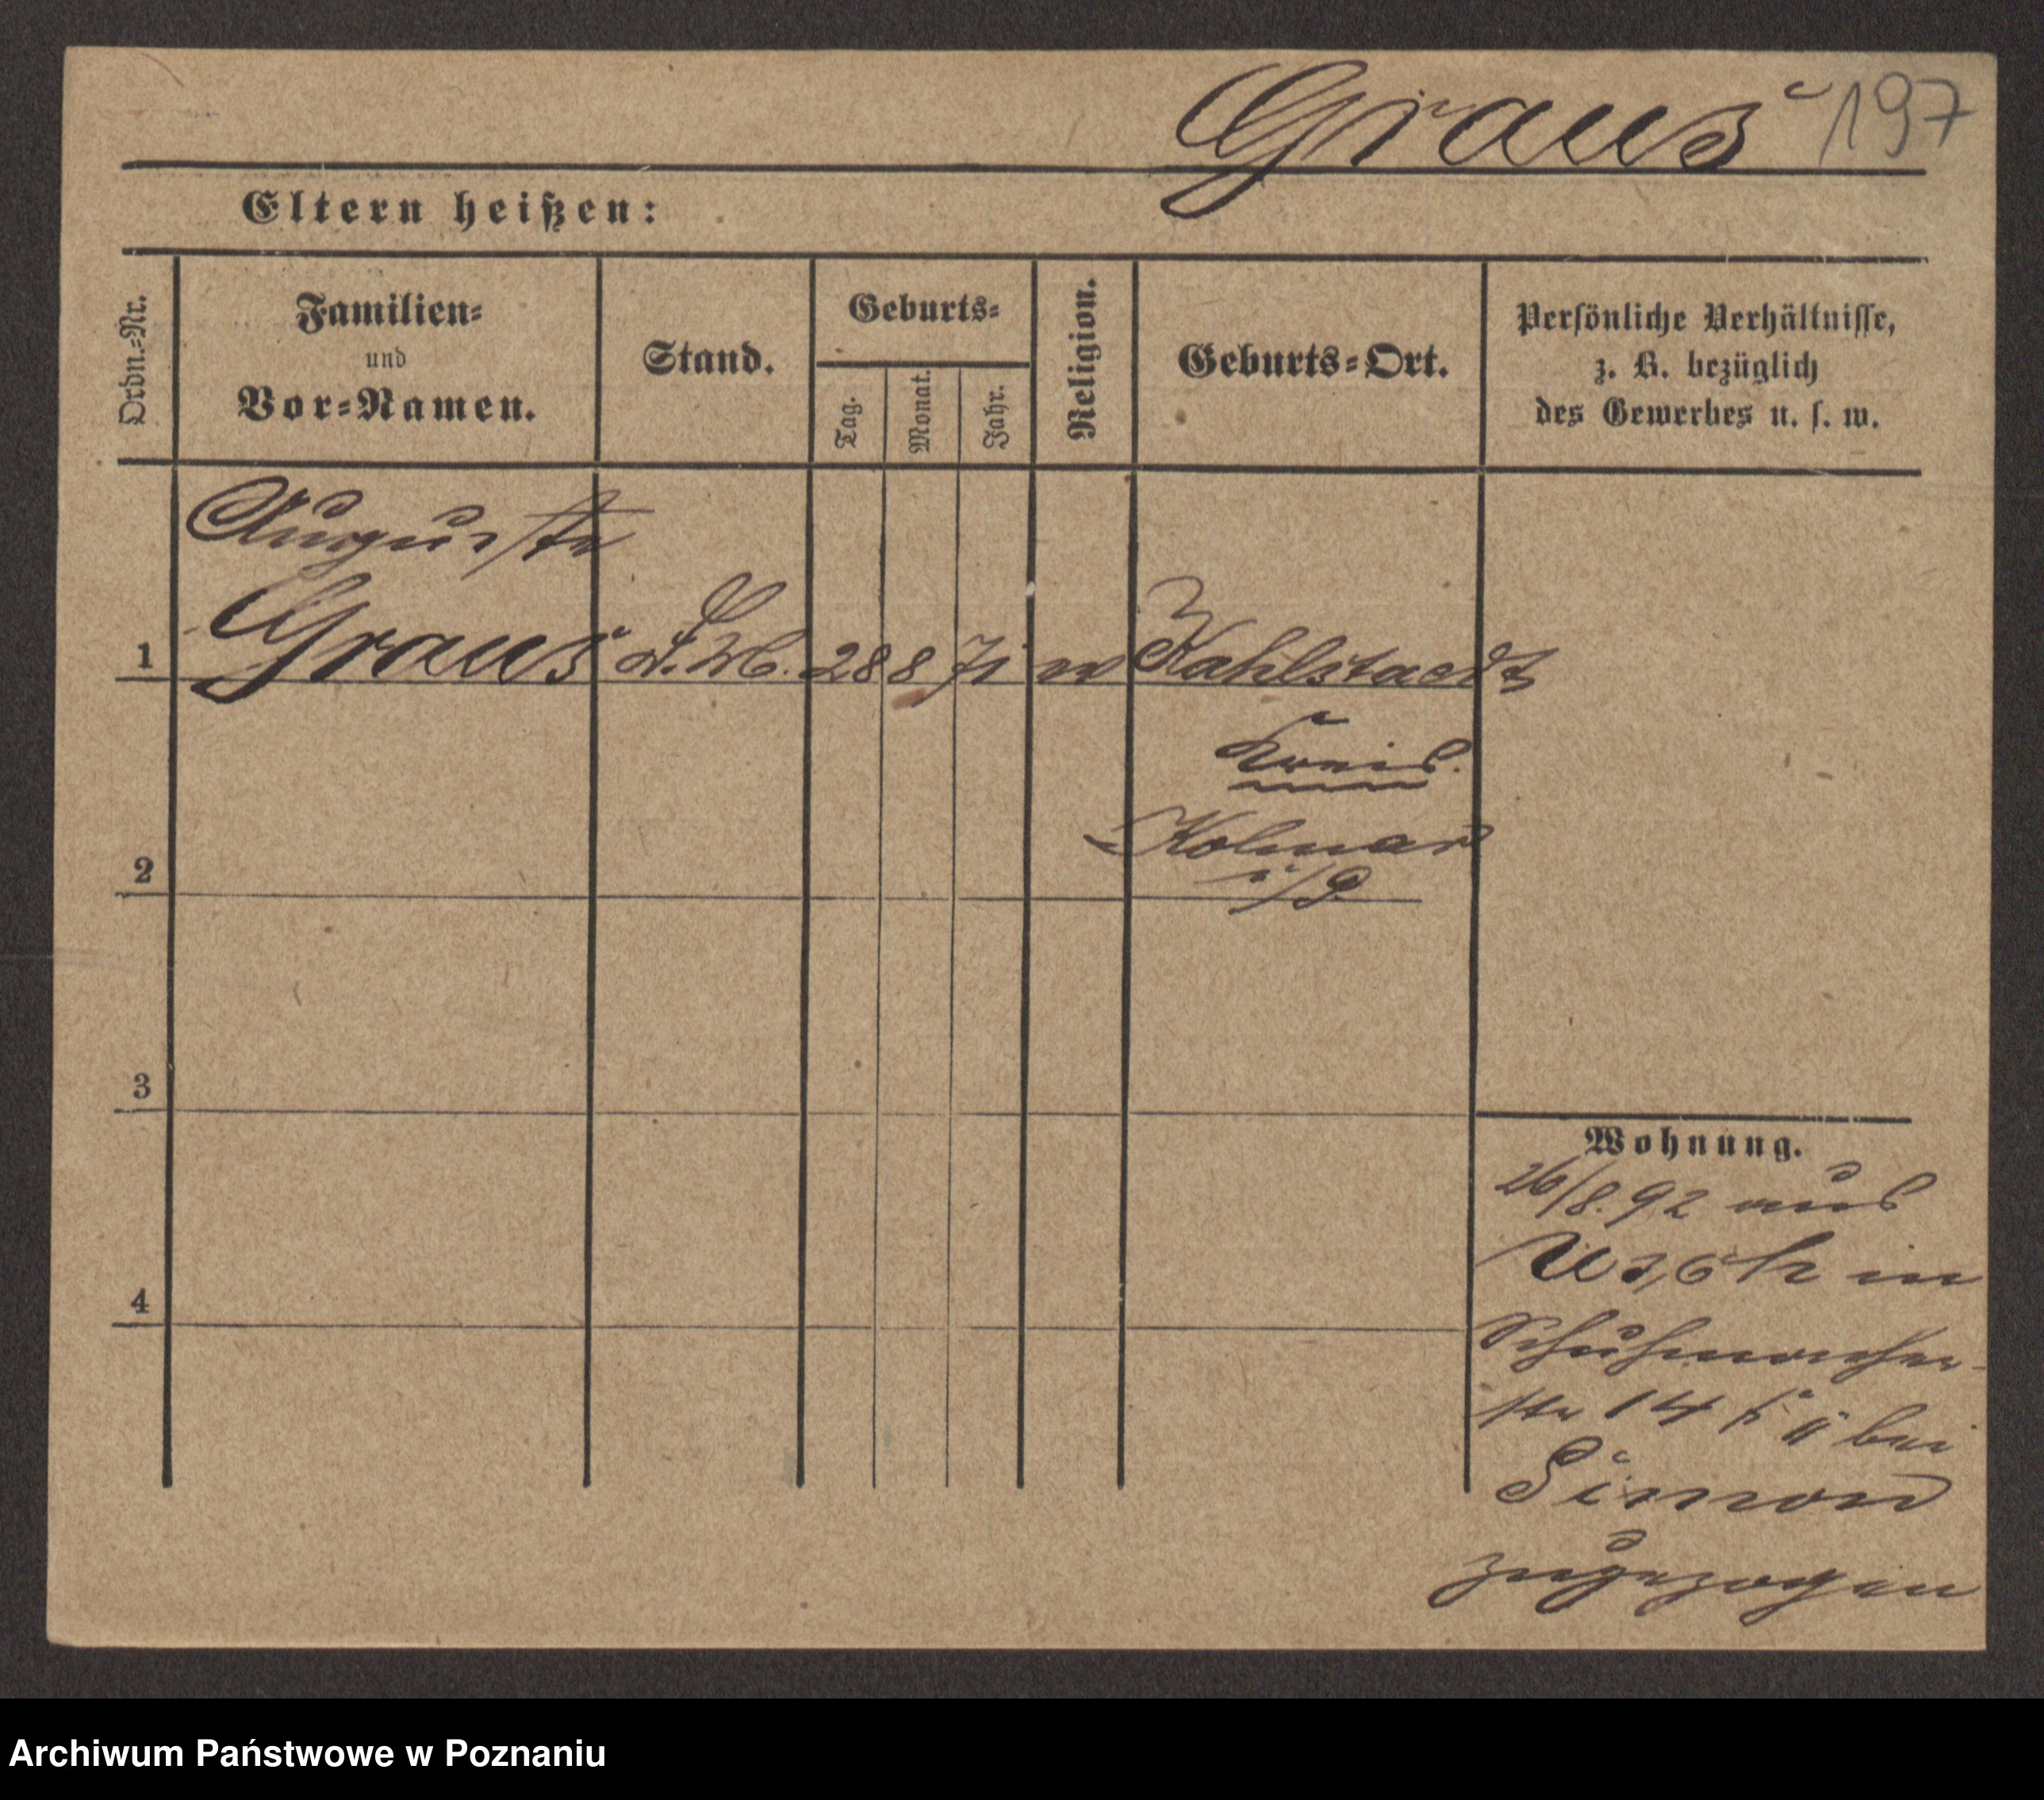 Graus 197
Eltern heißen:
Ordn.-Nr.
Familien-
und
Vor-Namen.
Stand.
Geburts-
Tag.
Monat.
Jahr.
Religion.
Geburts-Ort.
Persönliche Verhältnisse,
z. B. bezüglich
des Gewerbes u. s. w.
Auguste
1 Graus D. M. 28 8 71 Kahlstaedt
Kreis
Kolmar
i/P.
2
3
4
Wohnung.
26/8.92 aus
Usch in
Schuhmacher-
str 14 bei
Simon
zugezogen
Archiwum Państwowe w Poznaniu